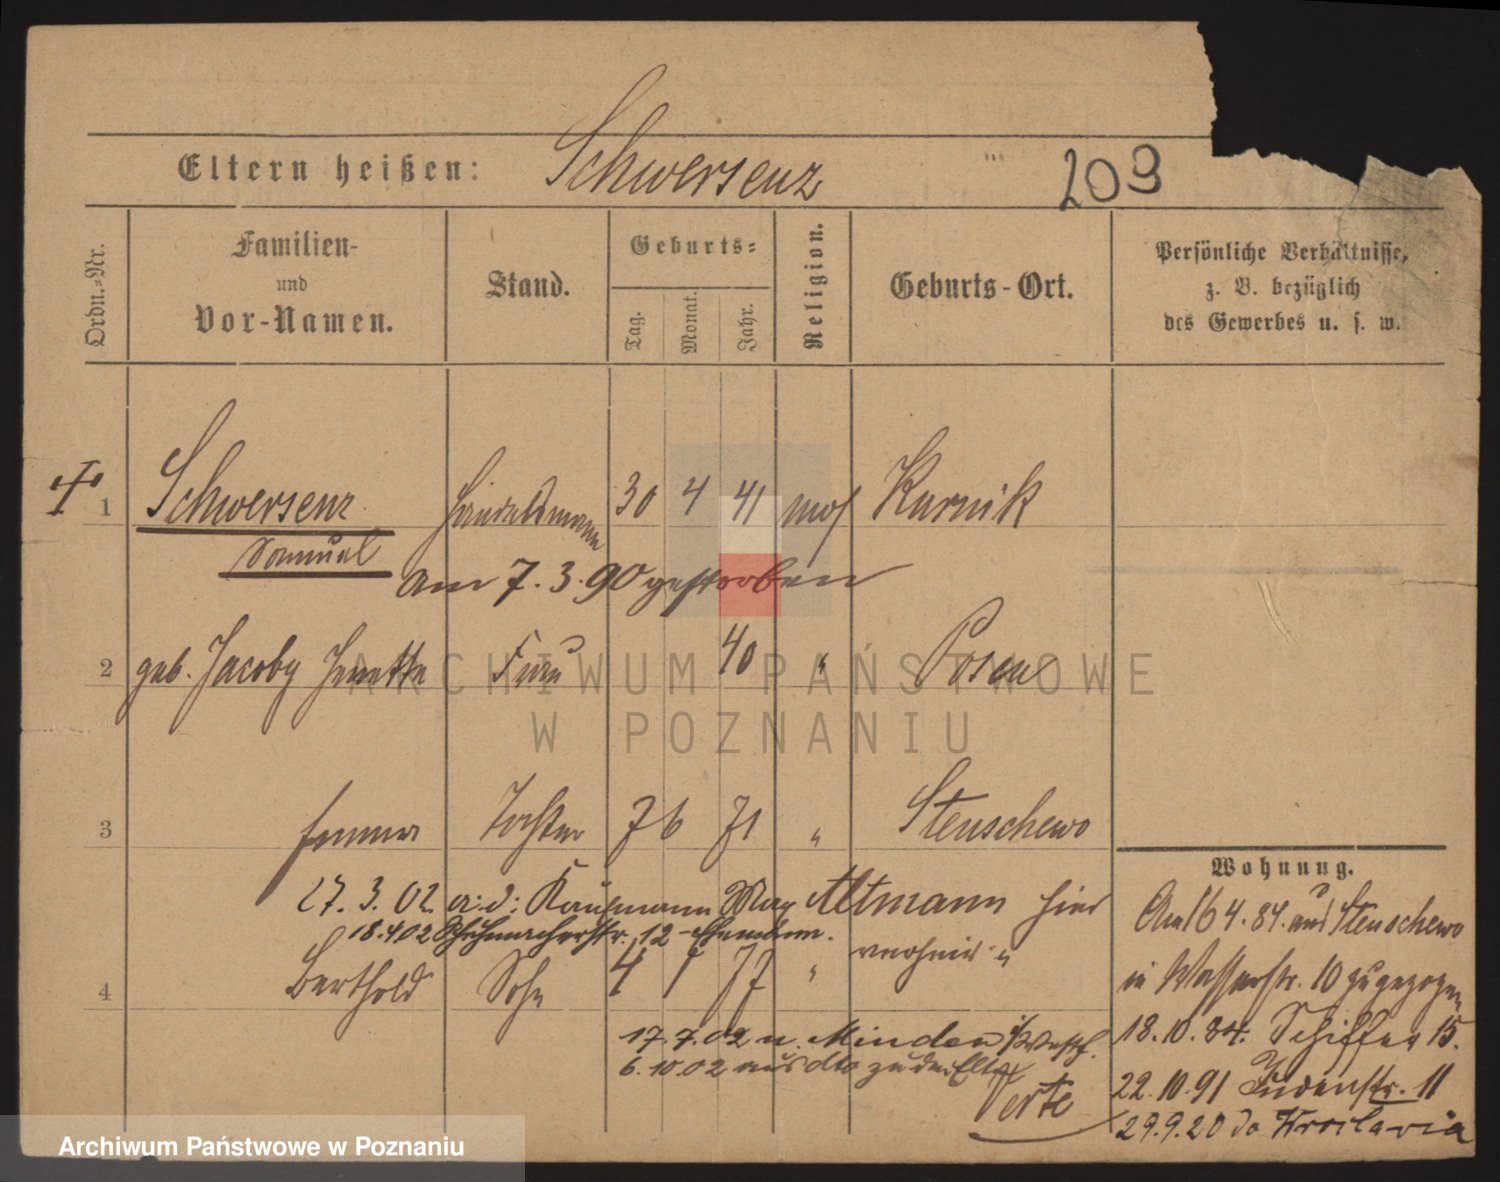 Eltern heißen: Schwersenz 209
Ordn.=Nr.
Familien-
und
Vor-Namen.
Stand.
Geburts=
Tag.
Monat.
Jahr.
Religion.
Geburts-Ort.
Persönliche Verhältnisse,
z. B. bezüglich
des Gewerbes u. s. w.
1 Schwersenz Handelsmann 30 4 41 mos Kurnik
Samuel
Am 7. 3. 90 gestorben
2 geb. Jacoby Jenette Frau 40 " Posen
3 Tochter 7 6 71 " Stenschewo
27. 3. 02 a. d. Kaufmann Max Altmann hier
18.4.02 Schuhmacherstr. 12 - Ehemann.
4 Berthold Sohn 4 1 77 " "
17.7.02 n. Minden i/Westf.
6.10.02 aus dto zu den Elt.
Verte
Wohnung.
Am 16 4. 84. aus Stenschewo
in Wasserstr. 10 zugezogen
18. 10. 84. Schiffer 15.
22. 10. 91 Judenstr. 11
29.9.20 do Wrocławia
ARCHIWUM PAŃSTWOWE
W POZNANIU
Archiwum Państwowe w Poznaniu